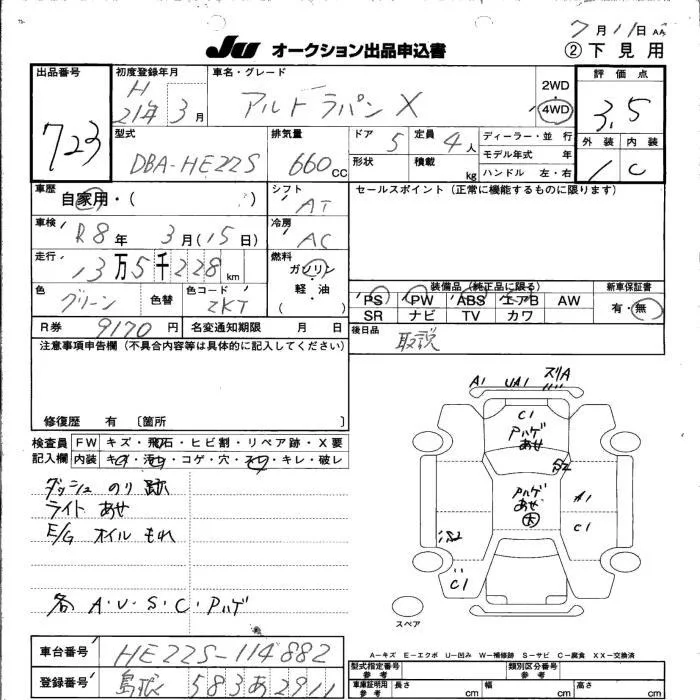 7月11日 AA
JU オークション出品申込書
② 下見用
出品番号 723
初度登録年月 H 21年 3月
車名・グレード アルトラパン X
2WD・4WD
評価点 3.5
外装 内装
1 C
型式 DBA-HE22S
排気量 660 CC
ドア 5
定員 4人
形状
積載 kg
ディーラー・並行
モデル年式 年
ハンドル 左・右
車歴 自家用・( )
シフト AT
セールスポイント(正常に機能するものに限ります)
車検 R8年 3月(15日)
冷房 AC
走行 13万5千228km
燃料 ガソリン・軽油 ( )
色 グリーン 色替
色コード ZKT
装備品(純正品に限る) 新車保証書
PS PW ABS エアB AW 有・無
SR ナビ TV カワ
R券 9170円 名変通知期限 月 日
後日品 取説
注意事項申告欄(不具合内容等は具体的に記入してください)
修復歴 有 〔箇所 〕
検査員 FW キズ・飛石・ヒビ割・リペア跡・X要
記入欄 内装 キズ・汚れ・コゲ・穴・スレ・キレ・破レ
ダッシュ のり跡
ライト あせ
E/G オイル もれ
各 A・U・S・C・Pハゲ
A1 UA1 スリA
C1
Pハゲ
あせ
S2
Pハゲ
あせ
大
A1
C1
S2
C1
スペア
A-キズ E-エクボ U-凹み W-補修跡 S-サビ C-腐食 XX-交換済
車台番号 HE22S-114882
型式指定番号 参考
類別区分番号 参考
登録番号 島根 583 あ 2911
車庫証明用 参考 長さ cm 幅 cm 高さ cm